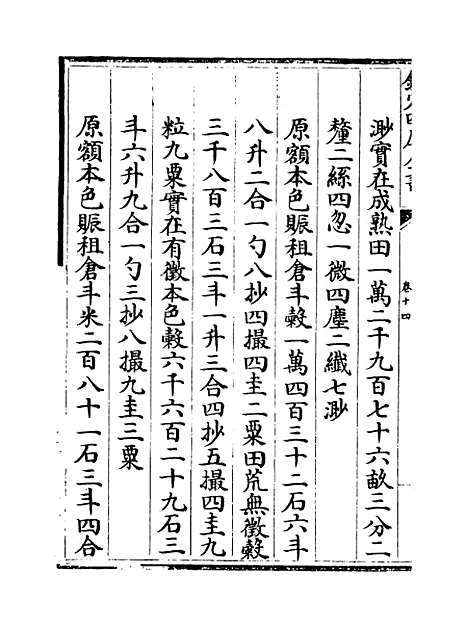 欽定四庫全書
卷十四
渺實在成熟田一萬二千九百七十六畝三分二
釐二絲四忽一微四塵二纖七渺
原額本色賑租倉斗穀一萬四百三十二石六斗
八升二合一勺八抄四撮四圭二粟田荒無徵穀
三千八百三石三斗一升三合四抄五撮四圭九
粒九粟實在有徵本色穀六千六百二十九石三
斗六升九合一勺三抄八撮九圭三粟
原額本色賑租倉斗米二百八十一石三斗四合